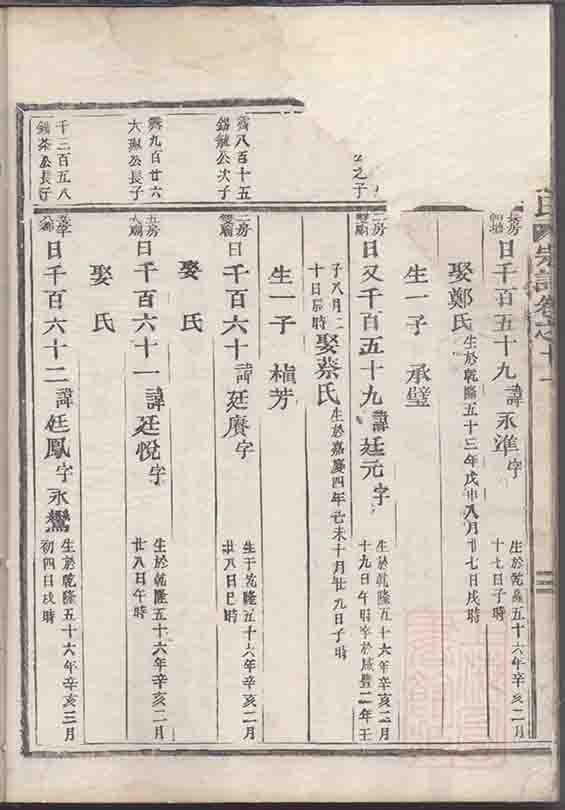 氏宗譜卷之十一
長房
日千百五十九 諱永準 字
生於乾隆五十六年辛亥二月
十七日子時
娶鄭氏
生於乾隆五十三年戊申八月廿七日戌時
生一子 承璧
之子
二房
雙廟
日又千百五十九 諱廷元 字
生於乾隆五十六年辛亥二月
十九日午時卒於咸豐二年壬
子八月二
十日辰時
娶蔡氏
生於嘉慶四年己未十月廿九日子時
生一子 楨芳
八百十五
錫 公次子
二房
雙廟
日千百六十 諱廷賡 字
生于乾隆五十六年辛亥二月
廿八日巳時
娶氏
九百廿六
大 公長子
五房
日千百六十一 諱廷悅 字
生於乾隆五十六年辛亥二月
廿八日午時
娶氏
千二百五八
錫茶公長子
日千百六十二 諱廷鳳 字永鸞
生於乾隆五十六年辛亥三月
初四日戌時